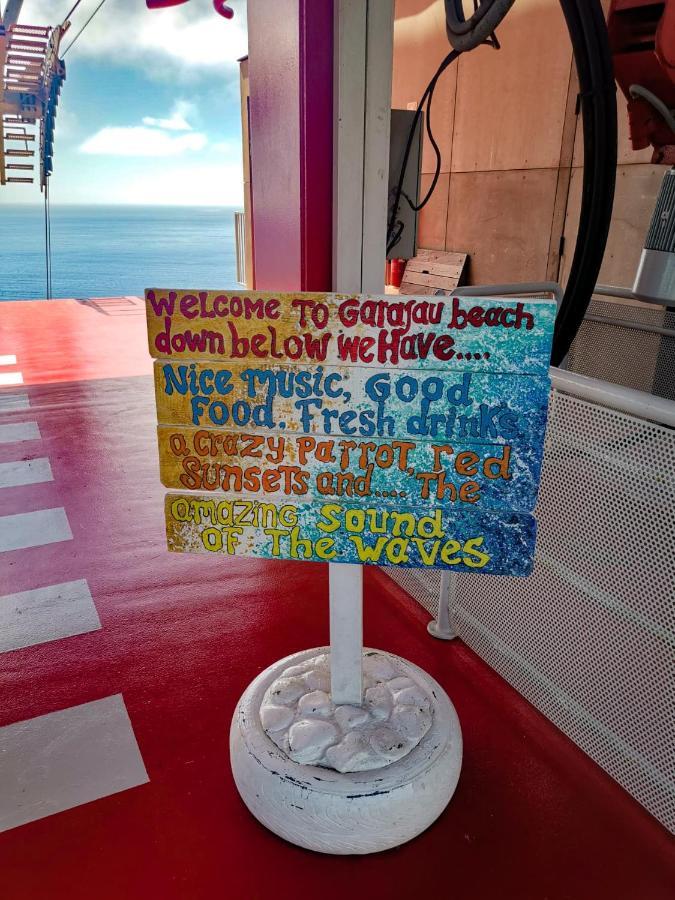 Welcome To Garajau beach
down below we Have....
Nice music, Good
Food, Fresh drinks,
a crazy parrot, red
Sunsets and.... The
amazing sound
OF The waves